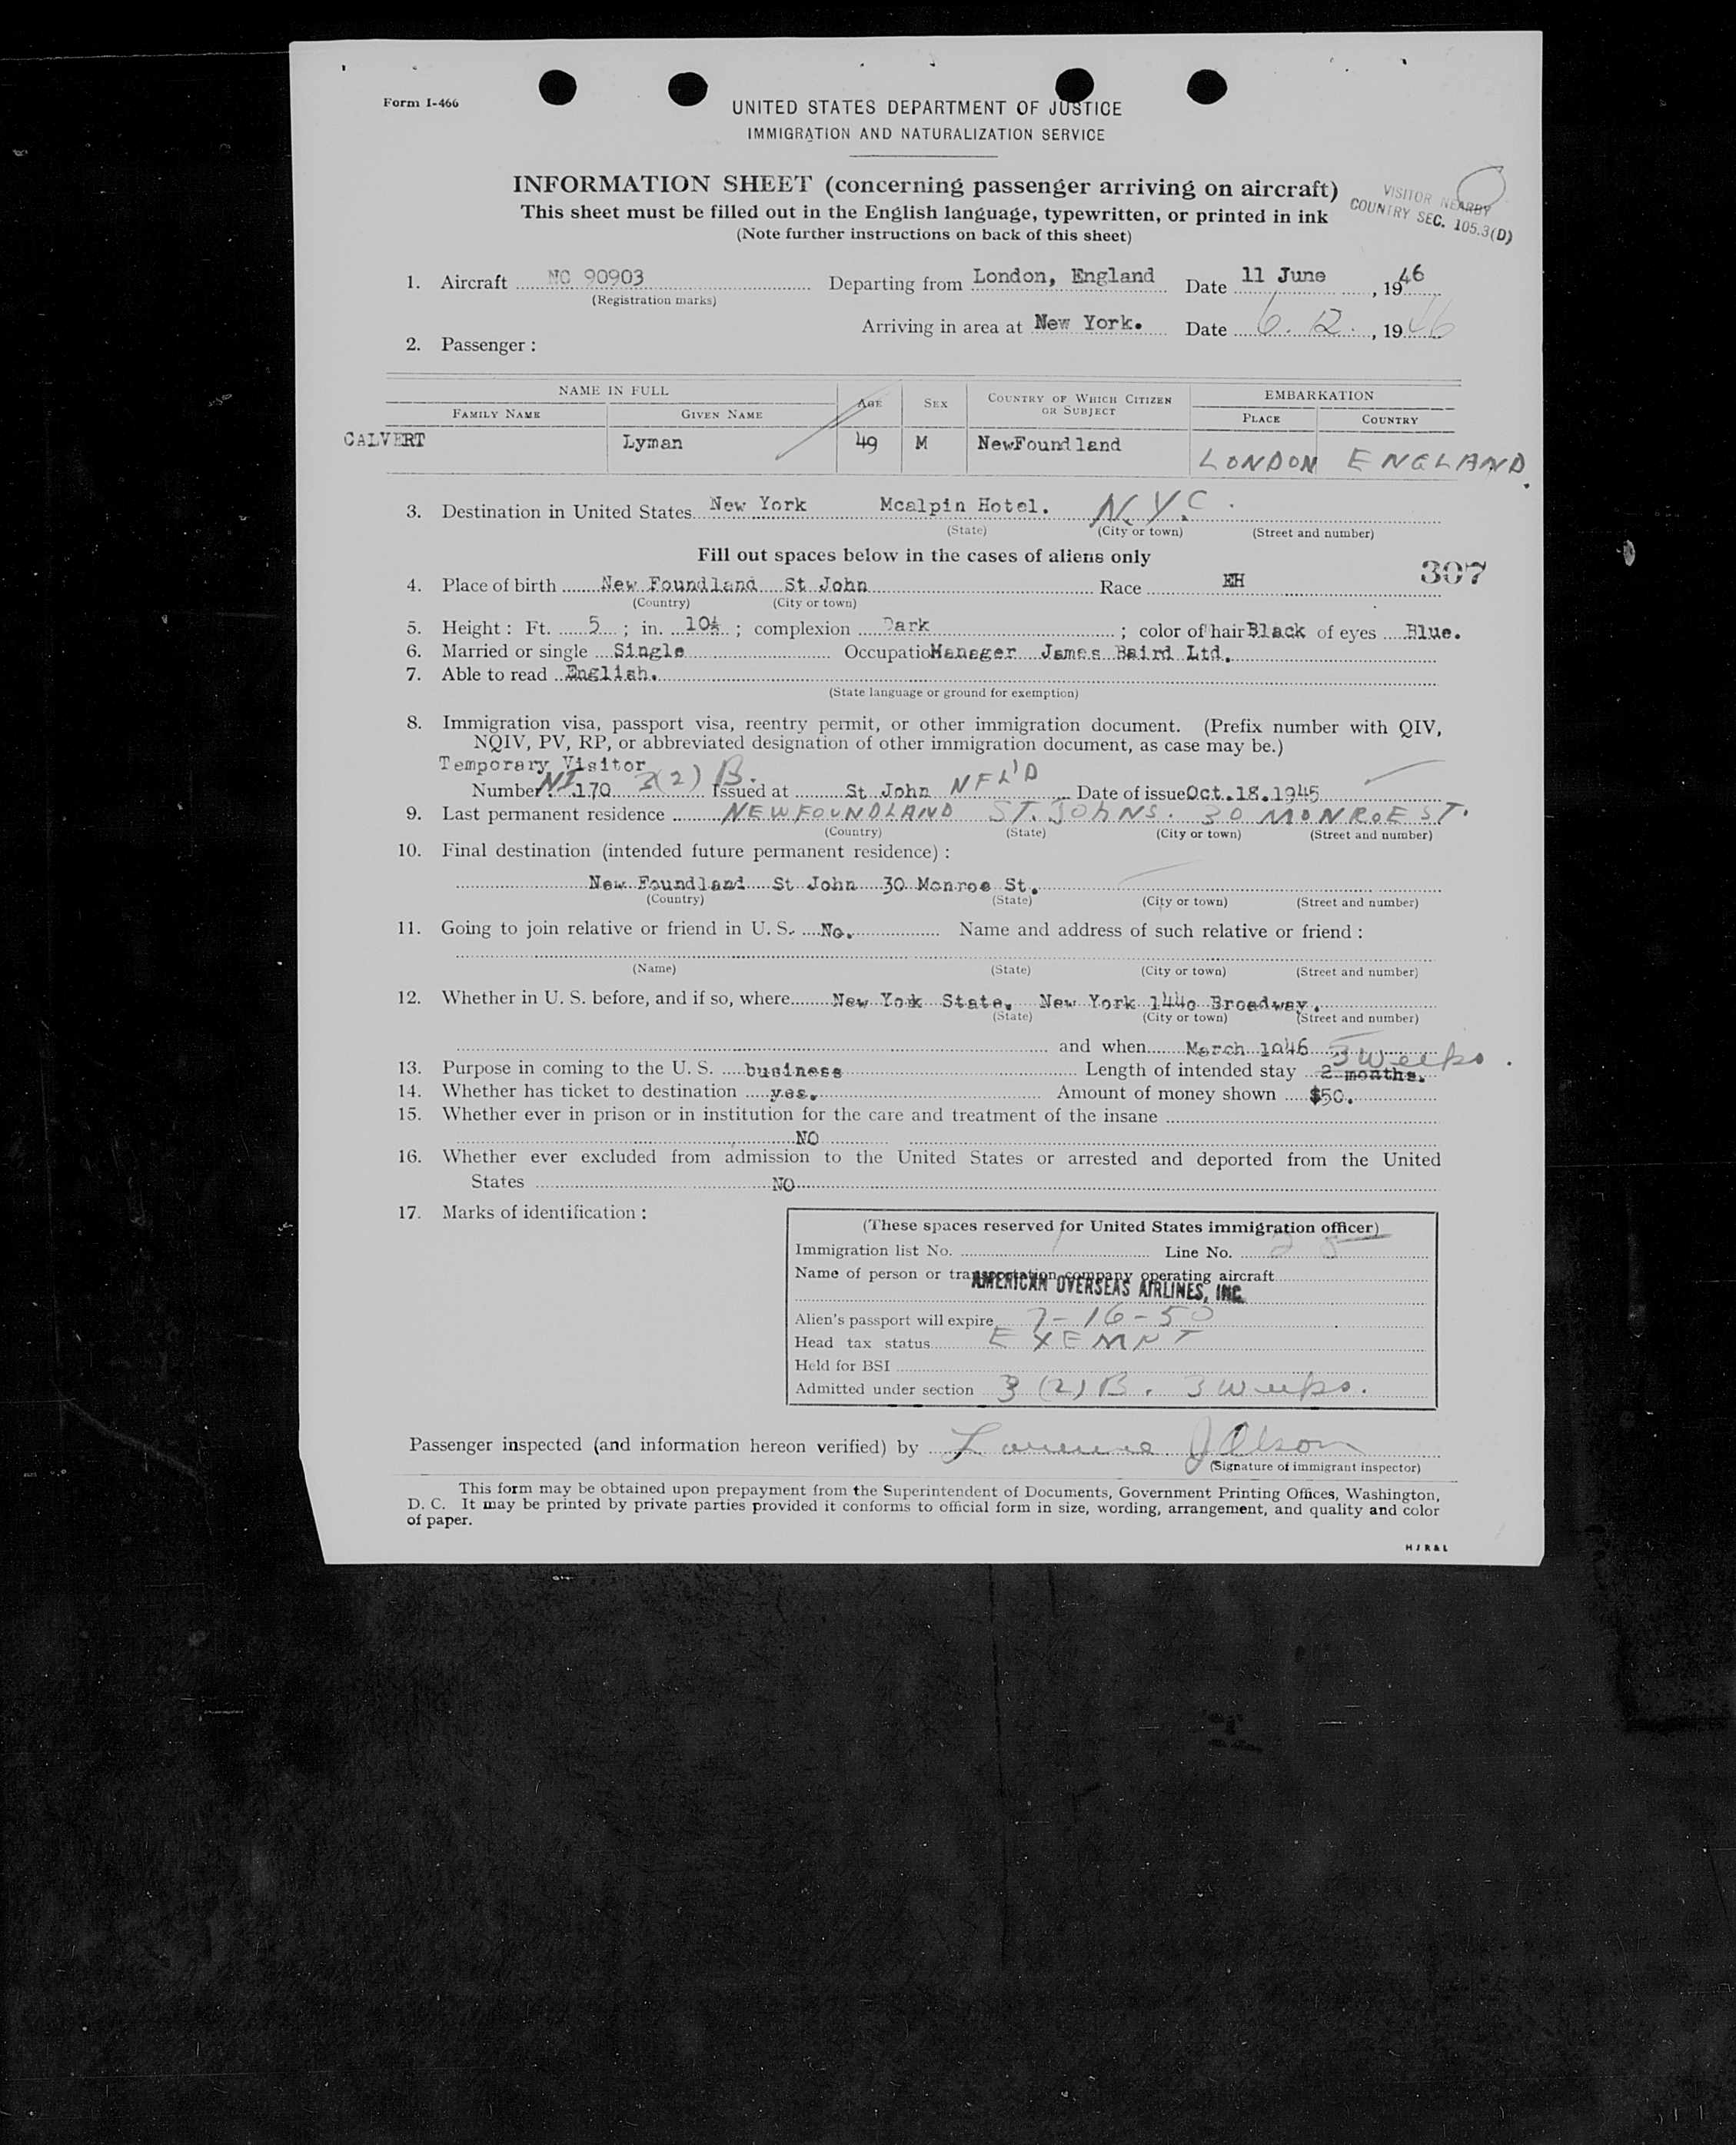 Form I-466
UNITED STATES DEPARTMENT OF JUSTICE
IMMIGRATION AND NATURALIZATION SERVICE
INFORMATION SHEET (concerning passenger arriving on aircraft)
This sheet must be filled out in the English language, typewritten, or printed in ink
(Note further instructions on back of this sheet)
VISITOR NEARBY
COUNTRY SEC. 105.3(D)
1. Aircraft NC 90903 Departing from London, England Date 11 June, 1946
(Registration marks)
Arriving in area at New York. Date 6.12., 1946
2. Passenger:
NAME IN FULL AGE SEX COUNTRY OF WHICH CITIZEN OR SUBJECT EMBARKATION
FAMILY NAME GIVEN NAME PLACE COUNTRY
CALVERT Lyman 49 M NewFoundland LONDON ENGLAND.
3. Destination in United States New York Mcalpin Hotel. N.Y.C.
(State) (City or town) (Street and number)
Fill out spaces below in the cases of aliens only
307
4. Place of birth New Foundland St John Race EH
(Country) (City or town)
5. Height: Ft. 5; in. 10½; complexion Dark; color of hair Black of eyes Blue.
6. Married or single Single Occupatio Manager James Baird Ltd.
7. Able to read English.
(State language or ground for exemption)
8. Immigration visa, passport visa, reentry permit, or other immigration document. (Prefix number with QIV,
NQIV, PV, RP, or abbreviated designation of other immigration document, as case may be.)
Temporary Visitor
Number NI 170 3(2) B. Issued at St John NFL'D Date of issue Oct.18.1945
9. Last permanent residence NEWFOUNDLAND ST. JOHNS. 30 MONROE ST.
(Country) (State) (City or town) (Street and number)
10. Final destination (intended future permanent residence):
New Foundland St John 30 Monroe St.
(Country) (State) (City or town) (Street and number)
11. Going to join relative or friend in U. S. No. Name and address of such relative or friend:
(Name) (State) (City or town) (Street and number)
12. Whether in U. S. before, and if so, where New York State, New York 1440 Broadway.
(State) (City or town) (Street and number)
and when March 1946
3 weeks.
13. Purpose in coming to the U. S. business Length of intended stay 2 months.
14. Whether has ticket to destination yes. Amount of money shown $50.
15. Whether ever in prison or in institution for the care and treatment of the insane
NO
16. Whether ever excluded from admission to the United States or arrested and deported from the United
States NO
17. Marks of identification:
(These spaces reserved for United States immigration officer)
Immigration list No. 1 Line No. 25
Name of person or transportation company operating aircraft
AMERICAN OVERSEAS AIRLINES, INC.
Alien's passport will expire 7-16-50
Head tax status EXEMPT
Held for BSI
Admitted under section 3(2)B. 3 weeks.
Passenger inspected (and information hereon verified) by J Olson
(Signature of immigrant inspector)
This form may be obtained upon prepayment from the Superintendent of Documents, Government Printing Offices, Washington,
D. C. It may be printed by private parties provided it conforms to official form in size, wording, arrangement, and quality and color
of paper.
HJR&L